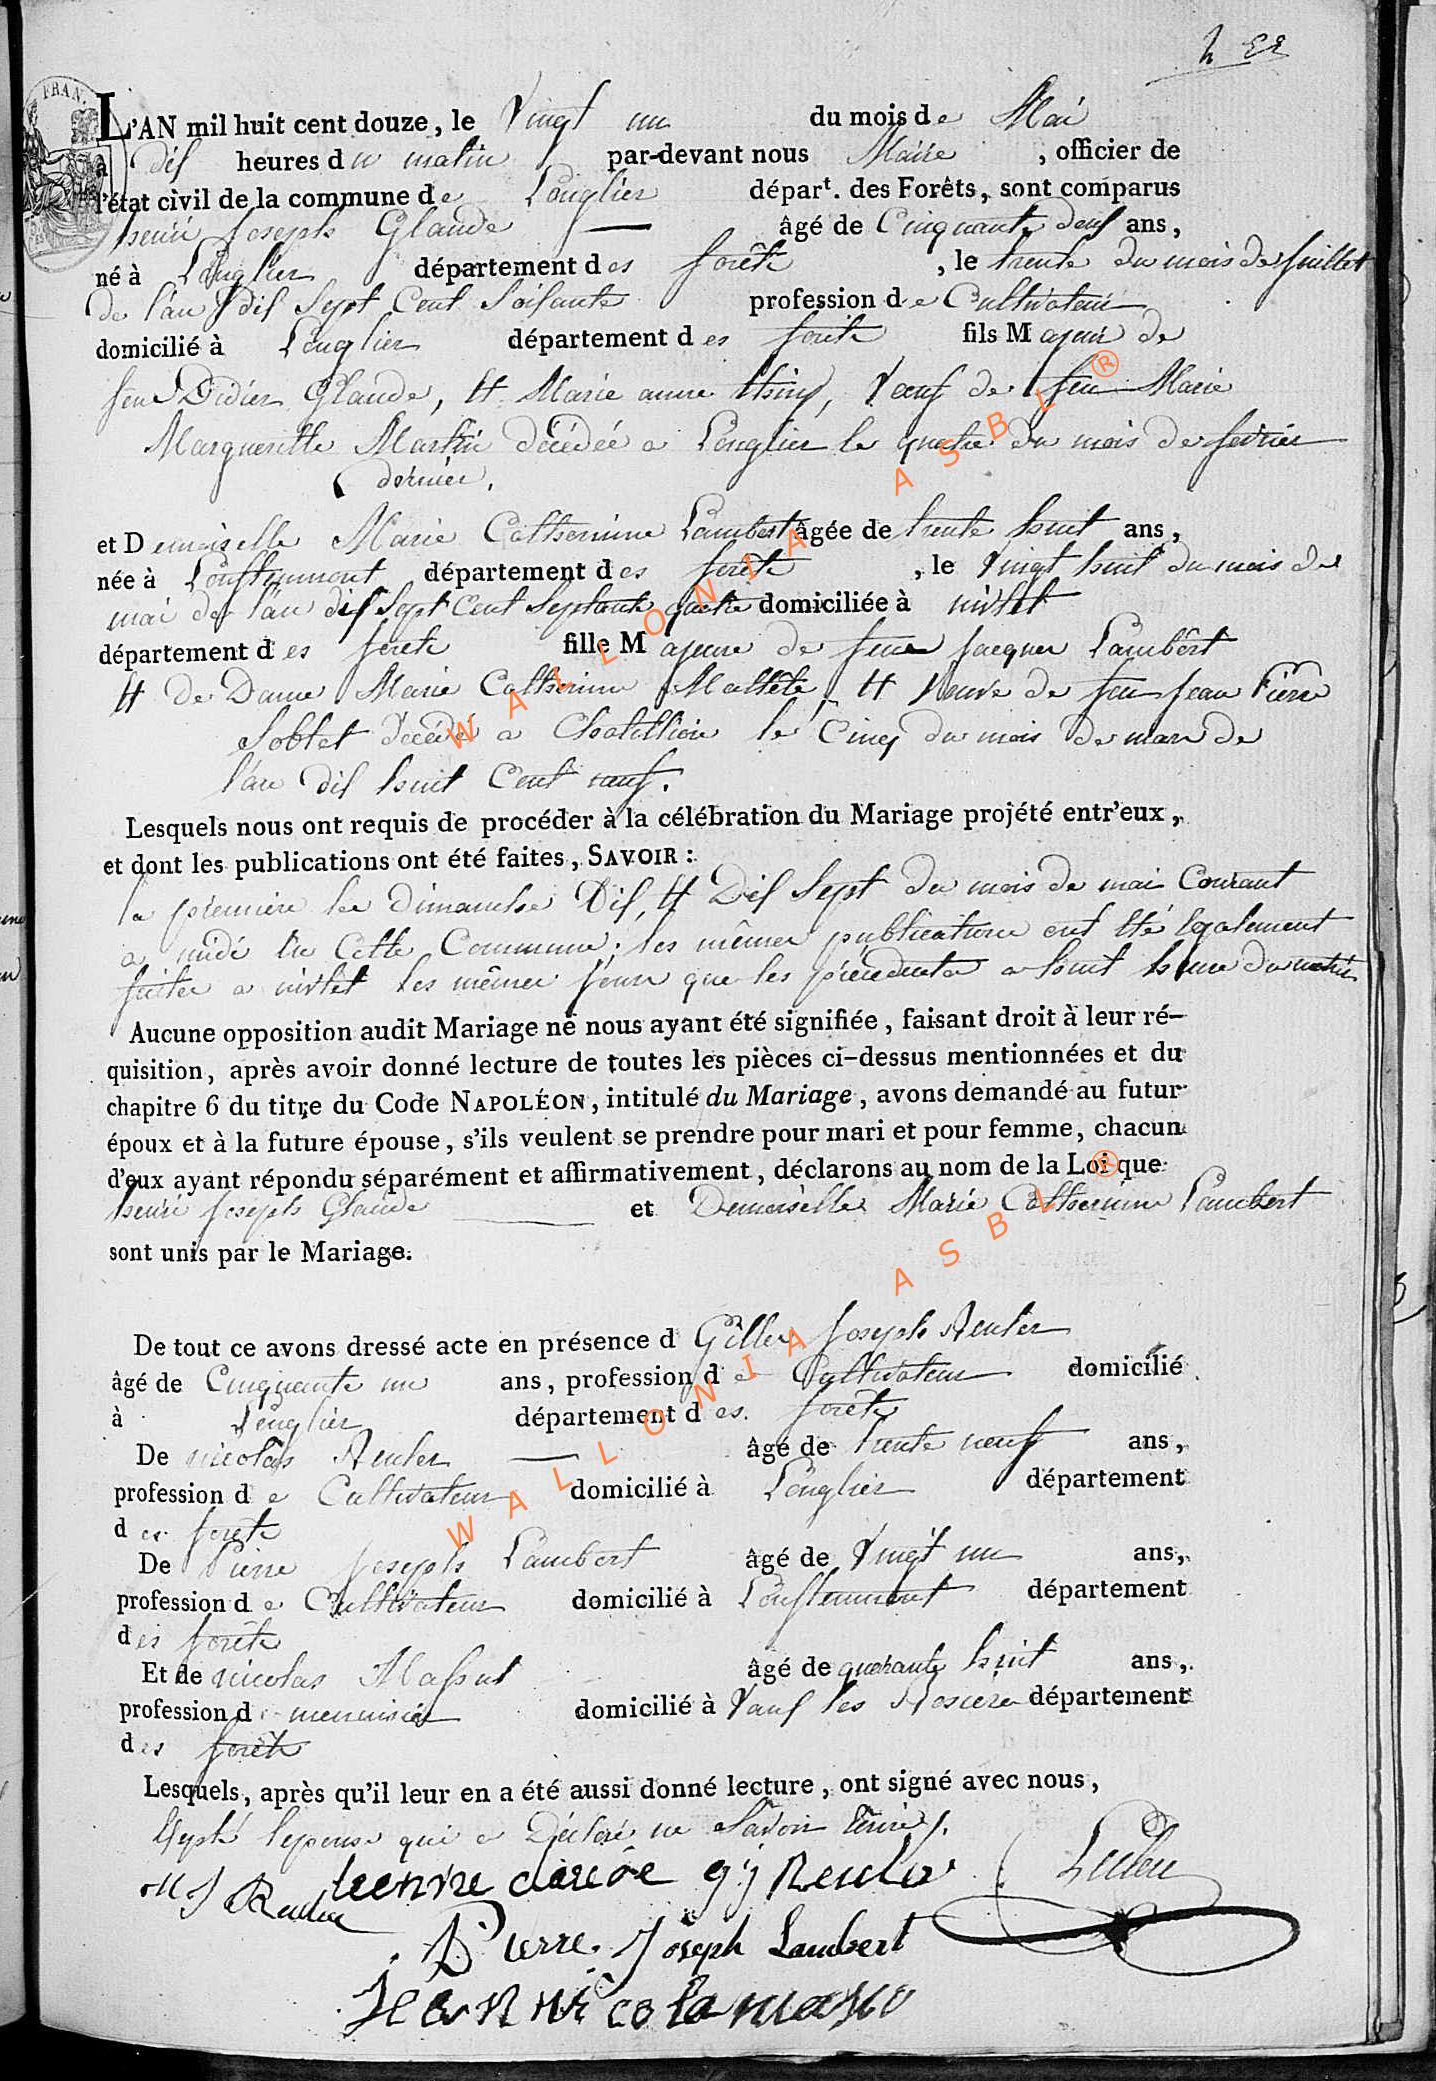 FRAN.
L'AN mil huit cent douze, le Vingt un du mois de Mai
à dis heures du matin par-devant nous Maire, officier de
l'état civil de la commune de Longlier départ. des Forêts, sont comparus
henri Joseph Glaude âgé de Cinquante deus ans,
né à Longlier département des forêts, le trente du mois de Juillet
de l'an dis Sept Cent Soisante profession de Cultivateur
domicilié à Longlier département des forêts fils Majeur de
feu Didier Glaude, et Marie anne, Veuf de feu Marie
Margueritte Martin décédée a Longlier le quatre du mois de fevrier
dernier.
et Demoiselle Marie Catherinne Lambert âgée de trente huit ans,
née à département des forêts, le Vingt huit du mois de
mai de l'an dis Sept Cent Septante quatre domiciliée à nivlet
département des forêts fille Majeure de feue Jacques Lambért
et de Dame Marie Catherinne et Veuve de feu Jean Pierre
décédé a Chatillion le Cinq du mois de mars de
l'an dis huit Cent neuf.
Lesquels nous ont requis de procéder à la célébration du Mariage projété entr'eux,
et dont les publications ont été faites, SAVOIR :
la premiere le dimanche Dis, et Dis Sept du mois de mai Courant
a midi en Cette Commune, les mêmes publications ont été égalment
faites a nivlet les mêmes jours que les précédentes a huit heures du matin
Aucune opposition audit Mariage ne nous ayant été signifiée, faisant droit à leur ré-
quisition, après avoir donné lecture de toutes les pièces ci-dessus mentionnées et du
chapitre 6 du titre du Code NAPOLÉON, intitulé du Mariage, avons demandé au futur
époux et à la future épouse, s'ils veulent se prendre pour mari et pour femme, chacun
d'eux ayant répondu séparément et affirmativement, déclarons au nom de la Loi que
henri Joseph Glaude et Demoiselle Marie Catherinne Lambert
sont unis par le Mariage.
De tout ce avons dressé acte en présence d Gilles Joseph Reuler
âgé de Cinquante un ans, profession de Cultivateur domicilié
à Longlier département des forêts
De nicolas Reuler âgé de trente neuf ans,
profession de Cultivateur domicilié à Longlier département
des forêts
De Pierre Joseph Lambert âgé de Vingt un ans,
profession de Cultivateur domicilié à département
des forêts
Et de nicolas Massut âgé de quarante huit ans,
profession de menuisier domicilié à Vaus les Rosieres département
des forêts
Lesquels, après qu'il leur en a été aussi donné lecture, ont signé avec nous,
Éxepté l'épouse qui a Déclaré ne Savoir Ecrire.
Pierre Joseph Lambert
WALLONIA ASBL ®
WALLONIA ASBL ®